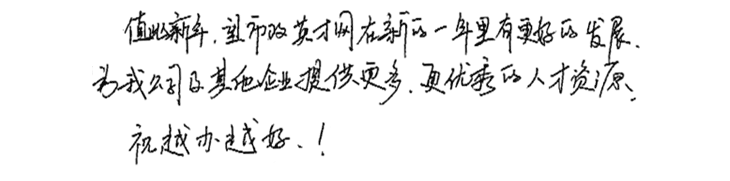 值此新年,望中国英才网在新的一年里有更好的发展.
为我公司及其他企业提供更多,更优秀的人才资源、
祝越办越好.!